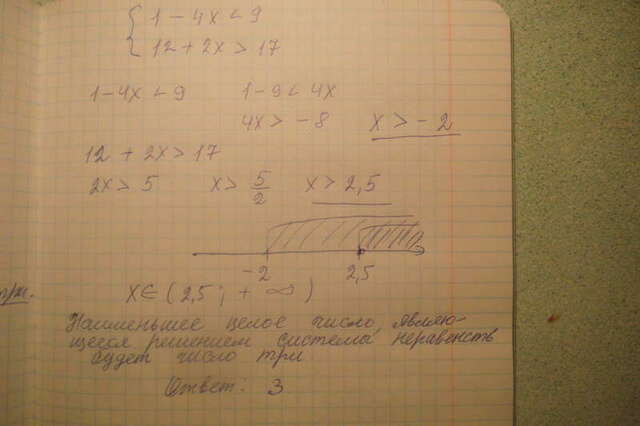 { 1 - 4x < 9
12 + 2x > 17
1 - 4x < 9 1 - 9 < 4x
4x > - 8 x > - 2
12 + 2x > 17
2x > 5 x > 5/2 x > 2,5
-2 2,5
x ∈ ( 2,5 ; + ∞ )
Наименьшее целое число, являю-
щееся решением системы неравенств
будет число три
Ответ: 3